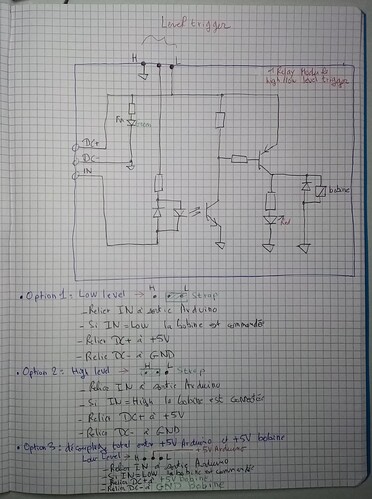 Level trigger
H L
→ Relay Module
high/low level trigger
DC+
DC-
IN
bobine
Red
• Option 1 = Low level → H • L Strap
- Relier IN à sortie Arduino
- Si IN = Low la bobine est commandée
- Relier DC+ à +5V
- Relier DC- à GND
• Option 2 = High level → H L Strap
- Relier IN à sortie Arduino
- Si IN = High la bobine est commandée
- Relier DC+ à +5V
- Relier DC- à GND
• Option 3 : découplage total entre +5V Arduino et +5V bobine
Low Level → H L +5V Arduino
- Relier IN à sortie Arduino
- Si IN = Low la bobine est commandée
- Relier DC+ à +5V bobine
- Relier DC- à GND bobine